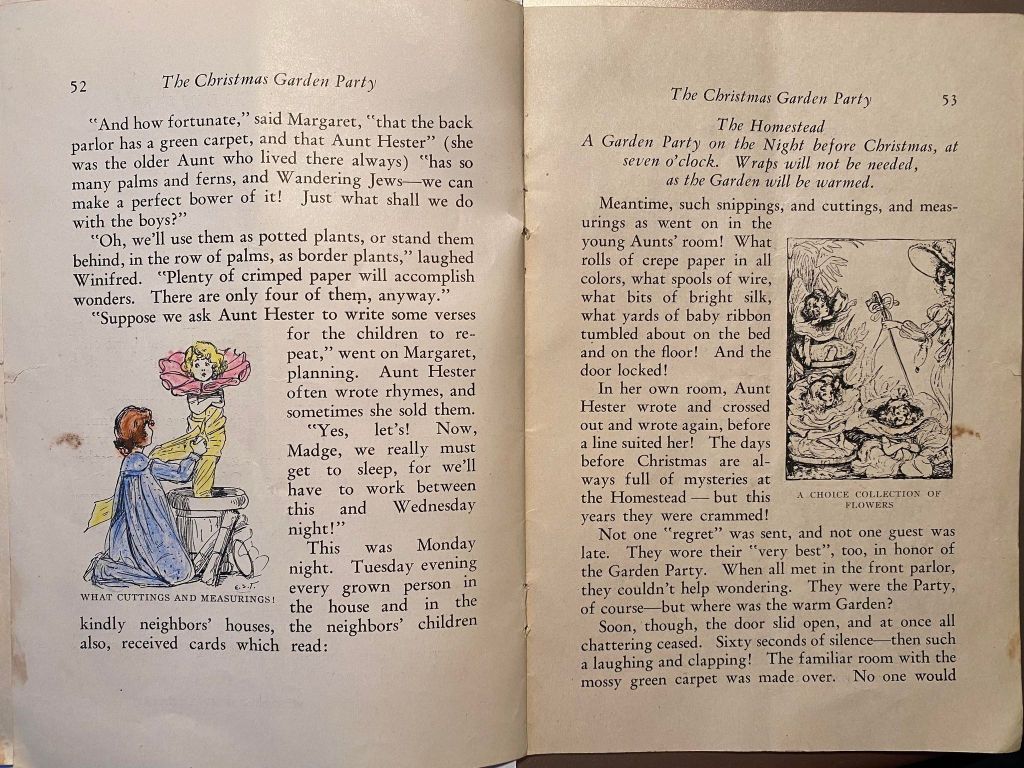 52
The Christmas Garden Party
"And how fortunate," said Margaret, "that the back
parlor has a green carpet, and that Aunt Hester" (she
was the older Aunt who lived there always) "has so
many palms and ferns, and Wandering Jews—we can
make a perfect bower of it! Just what shall we do
with the boys?"
"Oh, we'll use them as potted plants, or stand them
behind, in the row of palms, as border plants," laughed
Winifred. "Plenty of crimped paper will accomplish
wonders. There are only four of them, anyway."
"Suppose we ask Aunt Hester to write some verses
for the children to re-
peat," went on Margaret,
planning. Aunt Hester
often wrote rhymes, and
sometimes she sold them.
"Yes, let's! Now,
Madge, we really must
get to sleep, for we'll
have to work between
this and Wednesday
night!"
This was Monday
night. Tuesday evening
every grown person in
the house and in the
WHAT CUTTINGS AND MEASURINGS!
kindly neighbors' houses, the neighbors' children
also, received cards which read:
The Christmas Garden Party
53
The Homestead
A Garden Party on the Night before Christmas, at
seven o'clock. Wraps will not be needed,
as the Garden will be warmed.
Meantime, such snippings, and cuttings, and meas-
urings as went on in the
young Aunts' room! What
rolls of crepe paper in all
colors, what spools of wire,
what bits of bright silk,
what yards of baby ribbon
tumbled about on the bed
and on the floor! And the
door locked!
In her own room, Aunt
Hester wrote and crossed
out and wrote again, before
a line suited her! The days
before Christmas are al-
ways full of mysteries at
the Homestead — but this
years they were crammed!
A CHOICE COLLECTION OF
FLOWERS
Not one "regret" was sent, and not one guest was
late. They wore their "very best", too, in honor of
the Garden Party. When all met in the front parlor,
they couldn't help wondering. They were the Party,
of course—but where was the warm Garden?
Soon, though, the door slid open, and at once all
chattering ceased. Sixty seconds of silence—then such
a laughing and clapping! The familiar room with the
mossy green carpet was made over. No one would